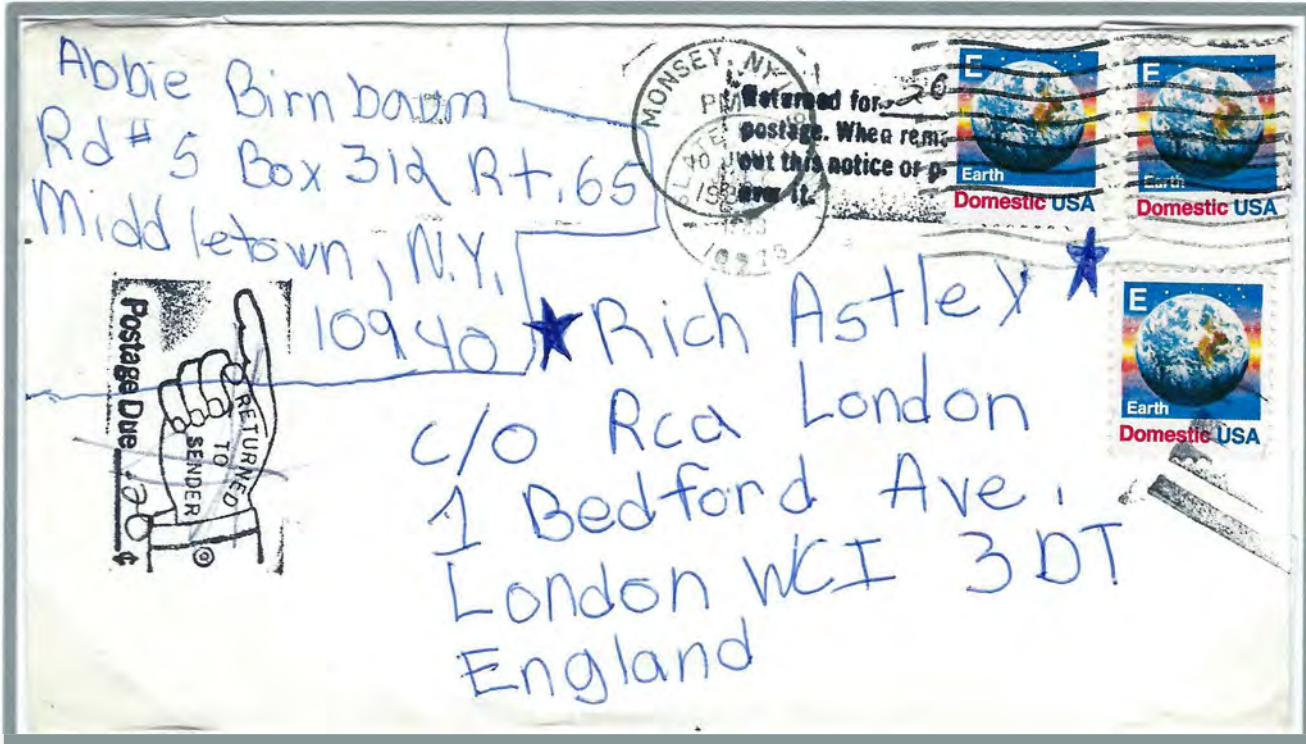 Abbie Birnbaum
Rd # 5 Box 312 Rt. 65
Middletown, N.Y.
10940
MONSEY, NY
PM
Returned for 20
postage. When
out this notice or
it.
E
Earth
Domestic USA
E
Earth
Domestic USA
E
Earth
Domestic USA
Postage Due 20 ¢
RETURNED
TO
SENDER
Rich Astley
c/o Rca London
1 Bedford Ave.
London WCI 3DT
England